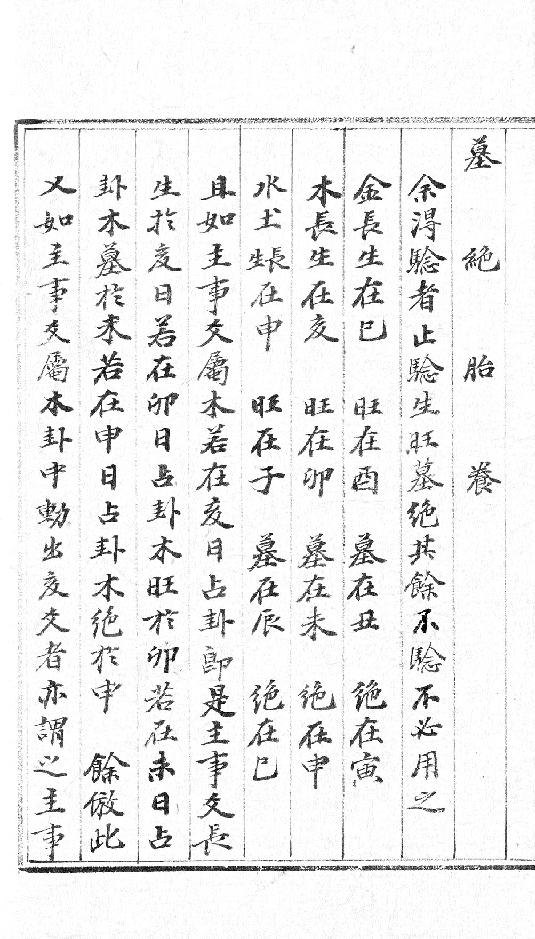 墓 絶 胎 養
余得驗者止驗生旺墓絶其餘不驗不必用之
金長生在巳 旺在酉 墓在丑 絶在寅
木長生在亥 旺在卯 墓在未 絶在申
水土長生在申 旺在子 墓在辰 絶在巳
且如主事爻屬木若在亥日占卦即是主事爻長
生於亥日若在卯日占卦木旺於卯若在未日占
卦木墓於未若在申日占卦木絶於申 餘倣此
又如主事爻屬木卦中動出亥爻者亦謂之主事